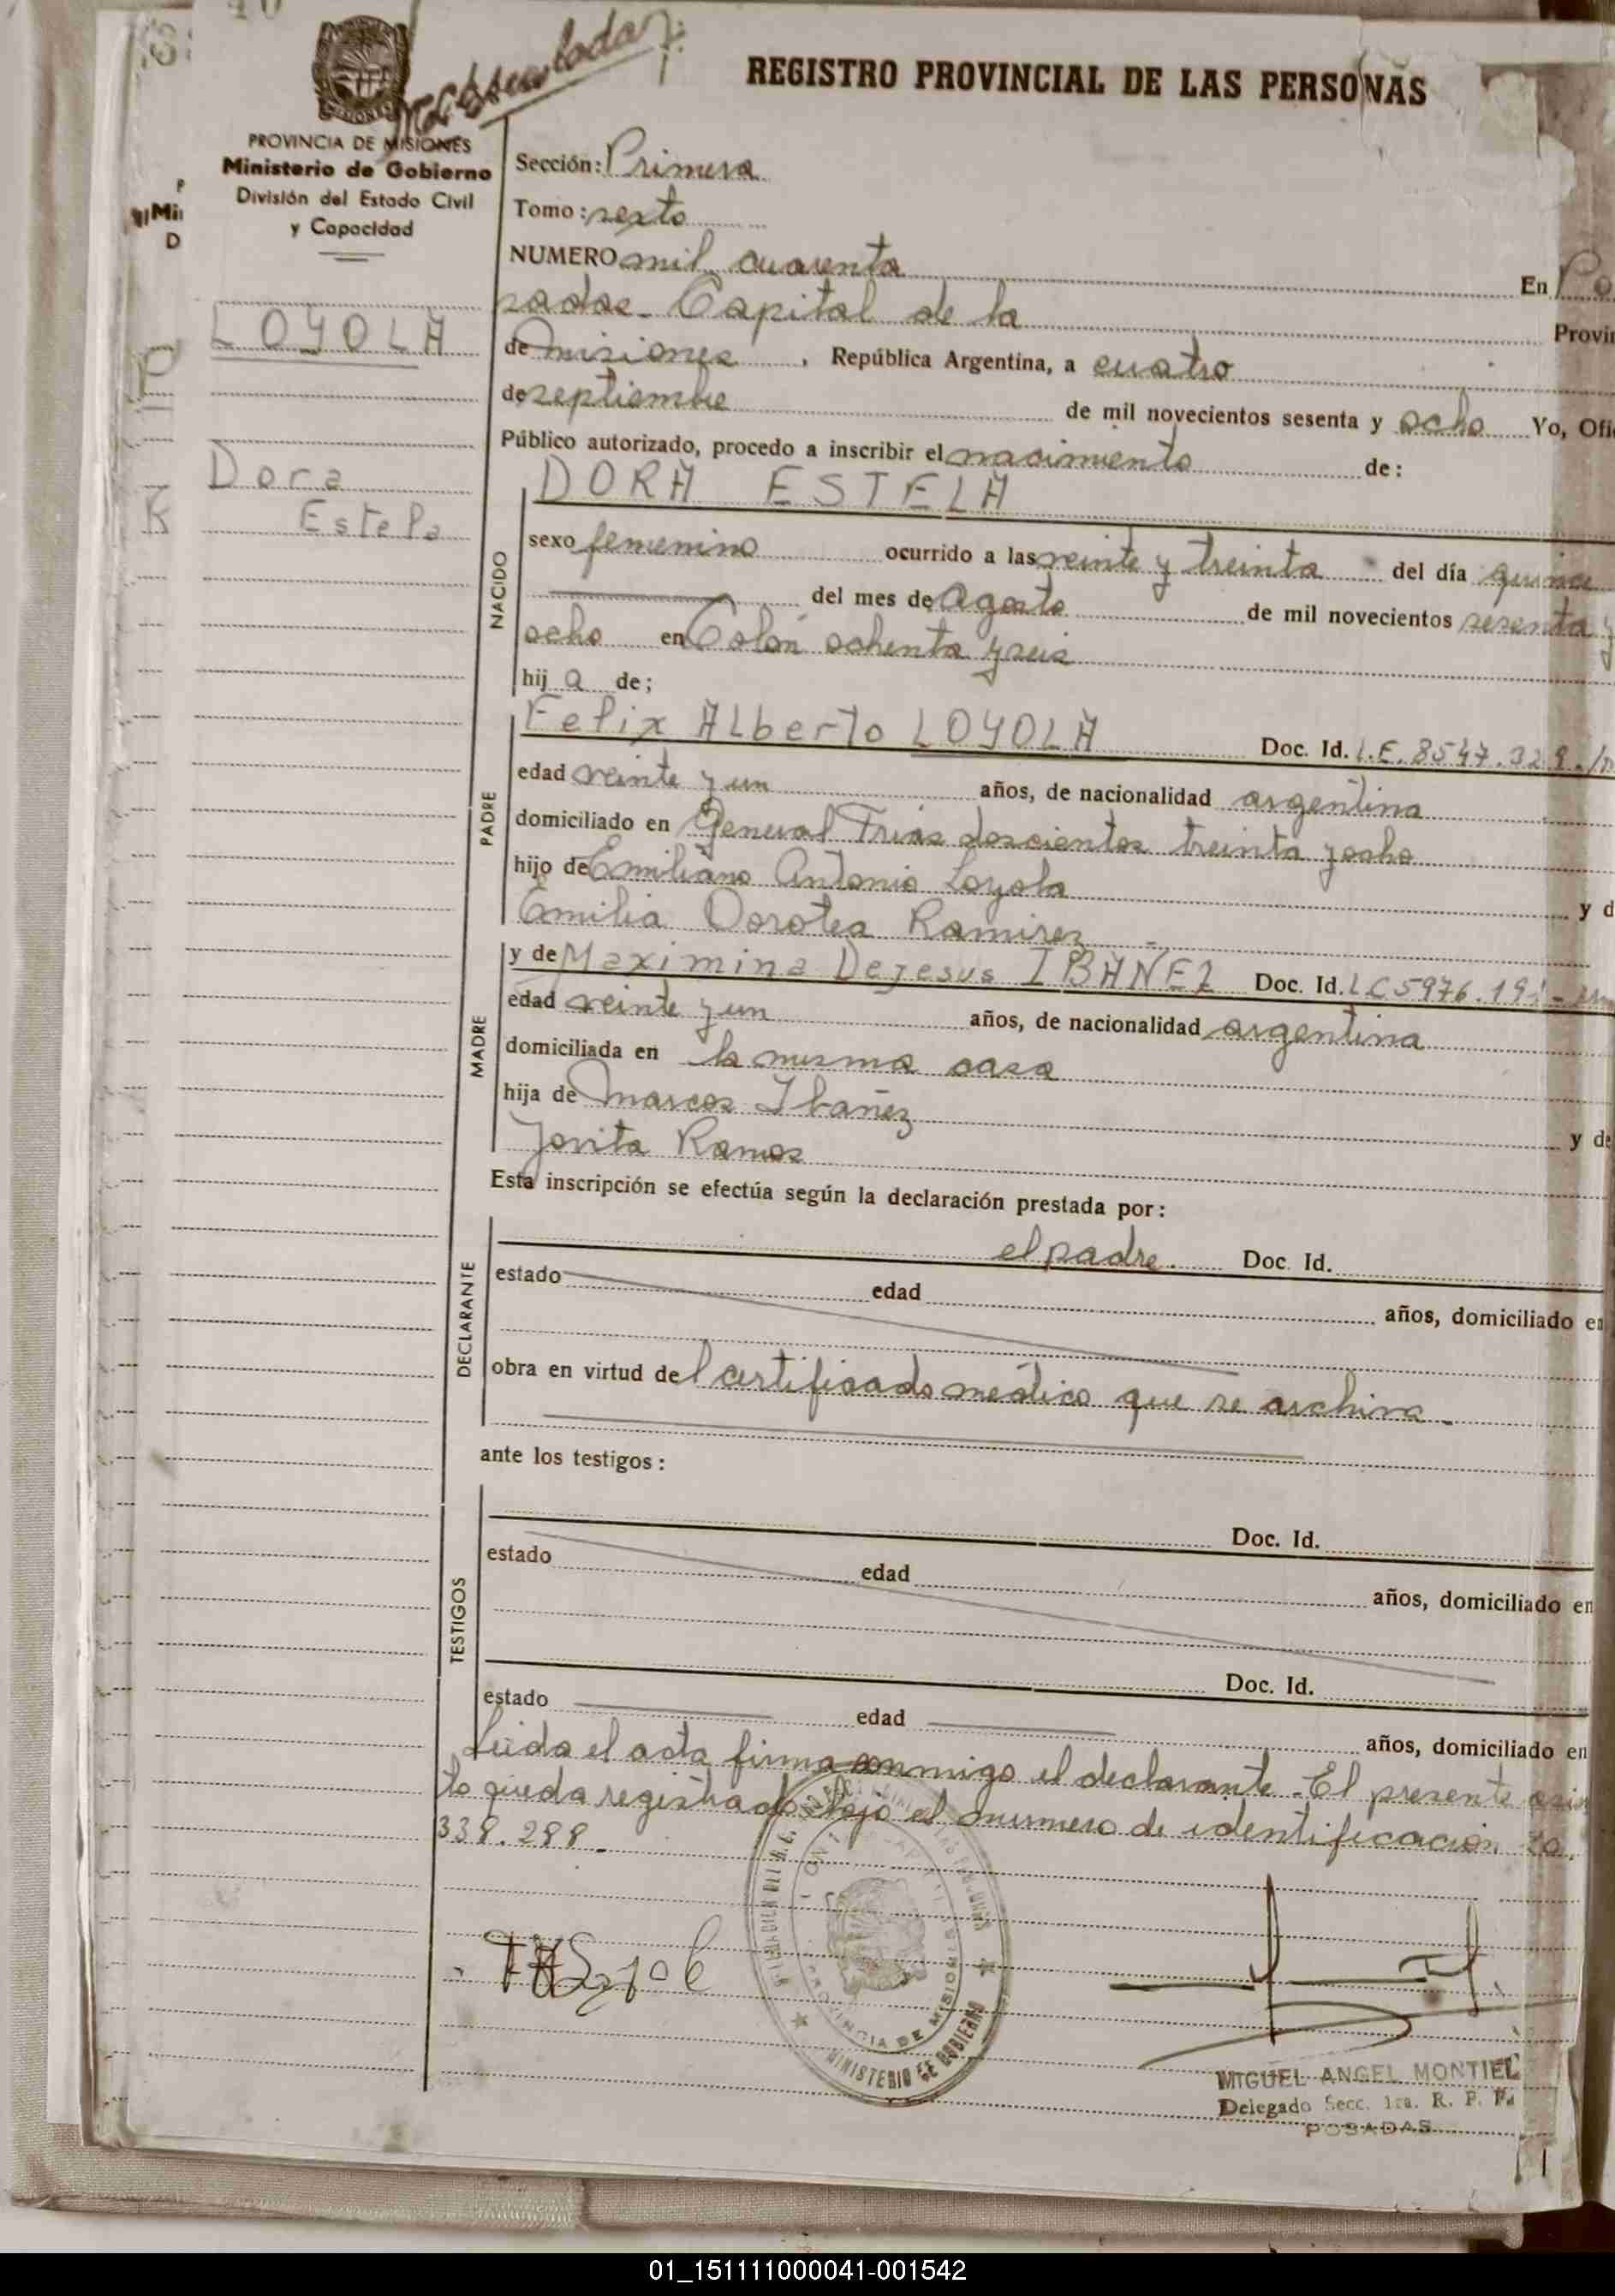 REGISTRO PROVINCIAL DE LAS PERSONAS
PROVINCIA DE MISIONES
Ministerio de Gobierno
División del Estado Civil
y Capacidad
LOYOLA
Dora
Estela
Sección: Primera
Tomo: sexto
NUMERO mil cuarenta En Po
sadas - Capital de la Provin
de Misiones , República Argentina, a cuatro
de septiembre de mil novecientos sesenta y ocho Yo, Ofi
Público autorizado, procedo a inscribir el nacimiento de:
NACIDO
DORA ESTELA
sexo femenino ocurrido a las veinte y treinta del día quince
del mes de Agosto de mil novecientos sesenta y
ocho en Colón ochenta y seis
hij a de;
PADRE
Felix Alberto LOYOLA Doc. Id. L.E. 8547.329
edad veinte y un años, de nacionalidad argentina
domiciliado en General Frias doscientos treinta y ocho
hijo de Emiliano Antonio Loyola y d
Emilia Dorotea Ramirez -
MADRE
y de Maximina Dejesus IBAÑEZ Doc. Id. LC 5976.191
edad veinte y un años, de nacionalidad argentina
domiciliada en la misma casa
hija de Marcos Ibañez y de
Jovita Ramos
Esta inscripción se efectúa según la declaración prestada por:
DECLARANTE
el padre. Doc. Id.
estado edad años, domiciliado en
obra en virtud del certificado médico que se archiva -
ante los testigos:
TESTIGOS
Doc. Id.
estado edad años, domiciliado en
Doc. Id.
estado edad años, domiciliado en
Leida el acta firma conmigo el declarante - El presente asien
to queda registrado bajo el numero de identificación 20.
339.288 -
PROVINCIA DE MISIONES
MINISTERIO DE GOBIERNO
MIGUEL ANGEL MONTIEL
Delegado Secc. 1ra. R. P. P.
POSADAS
01_151111000041-001542